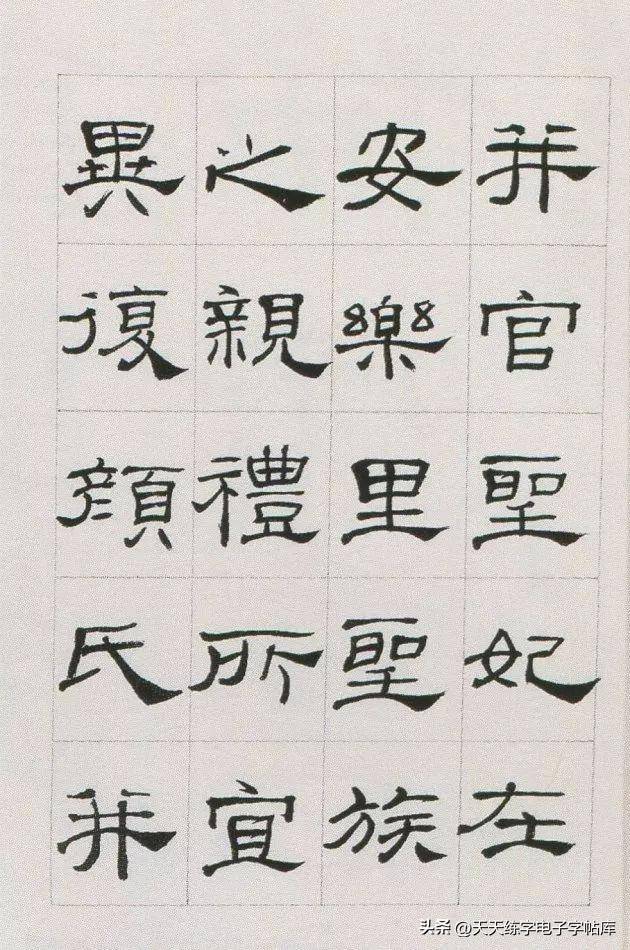 并官聖妃在
安樂里聖族
之親禮所宜
異復顏氏并
头条 @天天练字电子字帖库